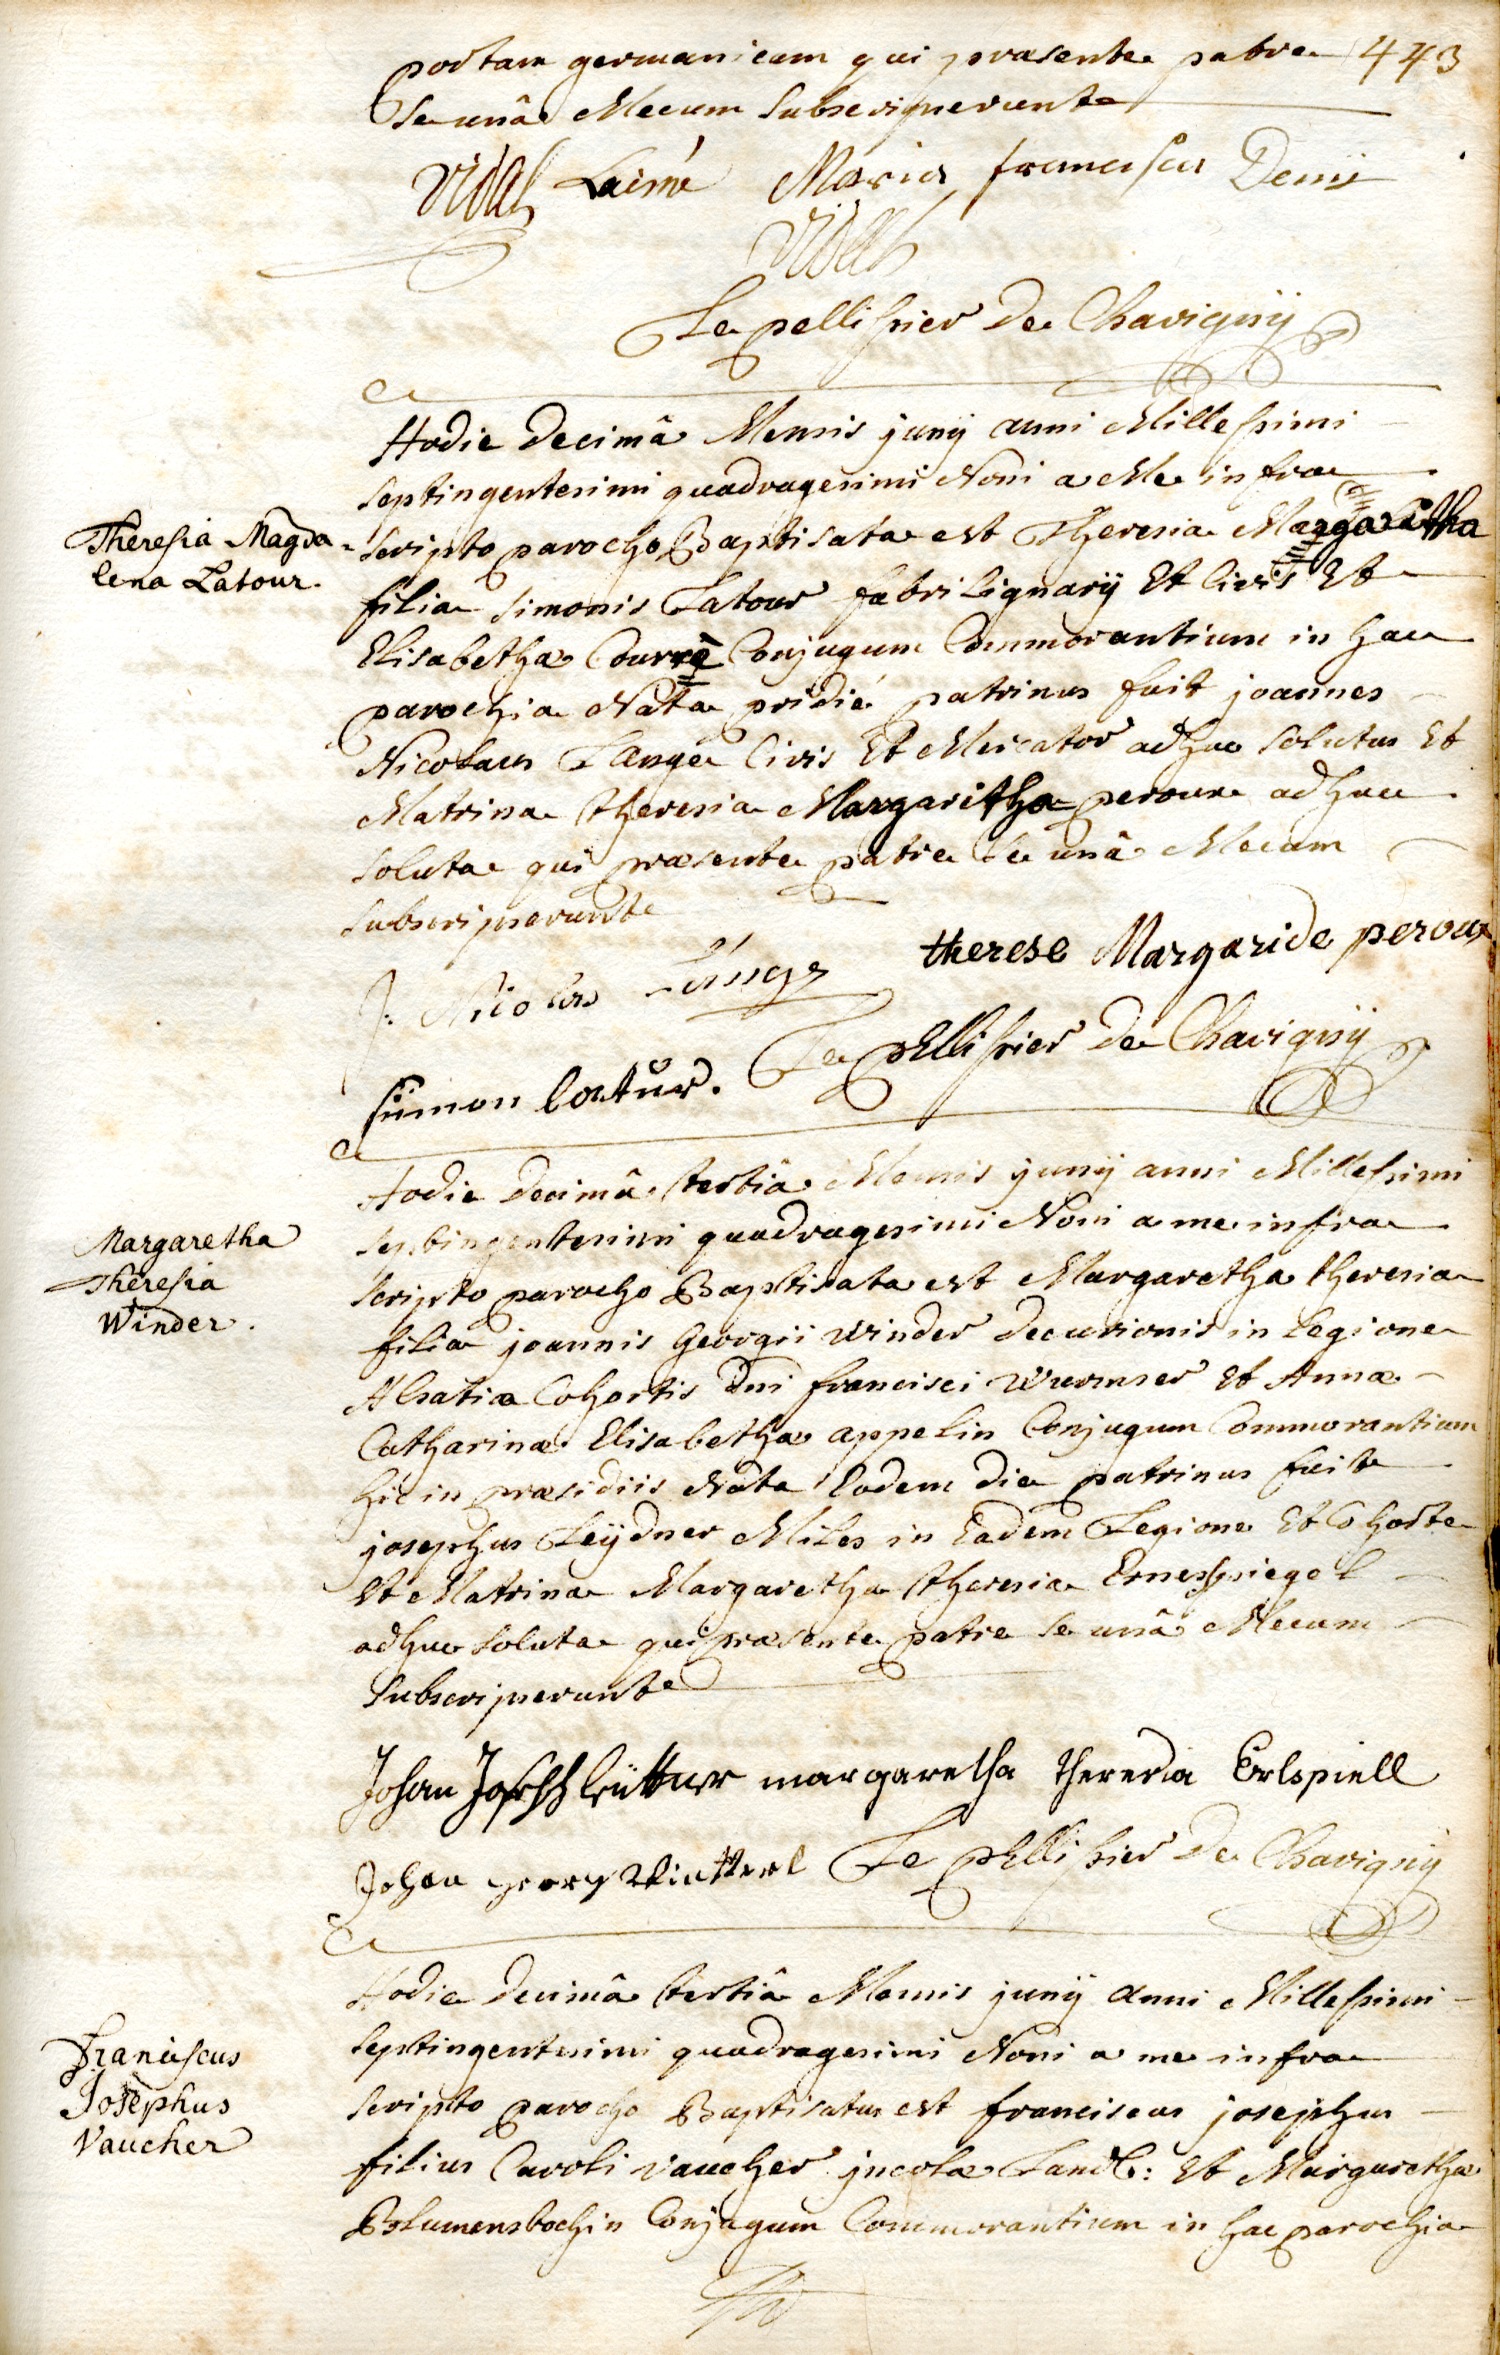 portam germanicam qui præsente patre 443
se unâ Mecum Subscripserunt
Vidal Laîné Maria francisca Denis
Vidal
Le pellissier De Chavignÿ
Hodie Decimâ Mensis junÿ anni Millessimi
Septingentesimi quadragesimi Noni a Me infra
Theresia Magda-
lena Latour.
scripto parocho Baptisata est Theresia Margaritha
filia Simonis Latour fabri Lignarÿ Et Civis Et
Elisabethæ Courrê Conjugum Commorantium in hac
parochia Nata pridie patrinus fuit joannes
Nicolaus Lange Civis Et Mercator adhuc Solutus Et
Matrina theresia Margaritha peroux adhuc
soluta qui præsente patre Se unâ Mecum
Subscripserunt
J: Nicolas Lange therese Margaride peroux
Simon latur. Le pellissier De Chavignÿ
Hodie Decimâ tertiâ Mensis junÿ anni Millessimi
Septingentesimi quadragesimi Noni a me infra
Margaretha
Theresia
Winder.
scripto parocho Baptisata est Margaretha theresia
filia joannis Georgii Winder Decurionis in Legione
Alsatiæ Cohortis Dni francisci Wurmser Et Annæ
Catharinæ Elisabethæ appelin Conjugum Commorantium
hic in præsidiis Nata Eadem die patrinus fuit
josephus Leÿdner Miles in Eadem Legione Et Cohorte
Et Matrina Margaretha theresia Ernesspiegel
adhuc Soluta qui præsente patre Se unâ Mecum
Subscripserunt
Johan Joseph margaretha thereria Erlspiell
Johan georg Le pellissier De Chavignÿ
Hodie Decimâ tertiâ Mensis junÿ Anni Millessimi
Septingentesimi quadragesimi Noni a me infra
Franciscus
Josephus
Vaucher
scripto parocho Baptisatus est franciscus josephus
filius Caroli vaucher jncolæ Land: Et Margarethæ
Blumensbochin Conjugum Commorantium in hac parochia